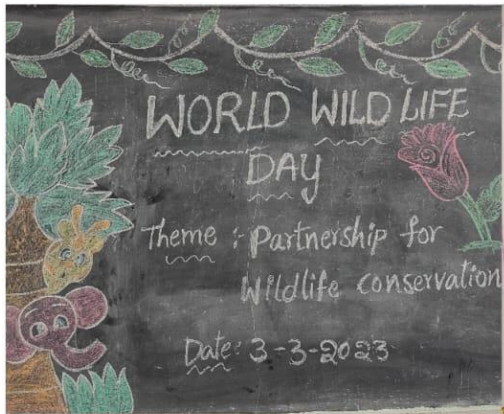 WORLD WILD LIFE
DAY
Theme : Partnership for
Wildlife conservation
Date: 3-3-2023